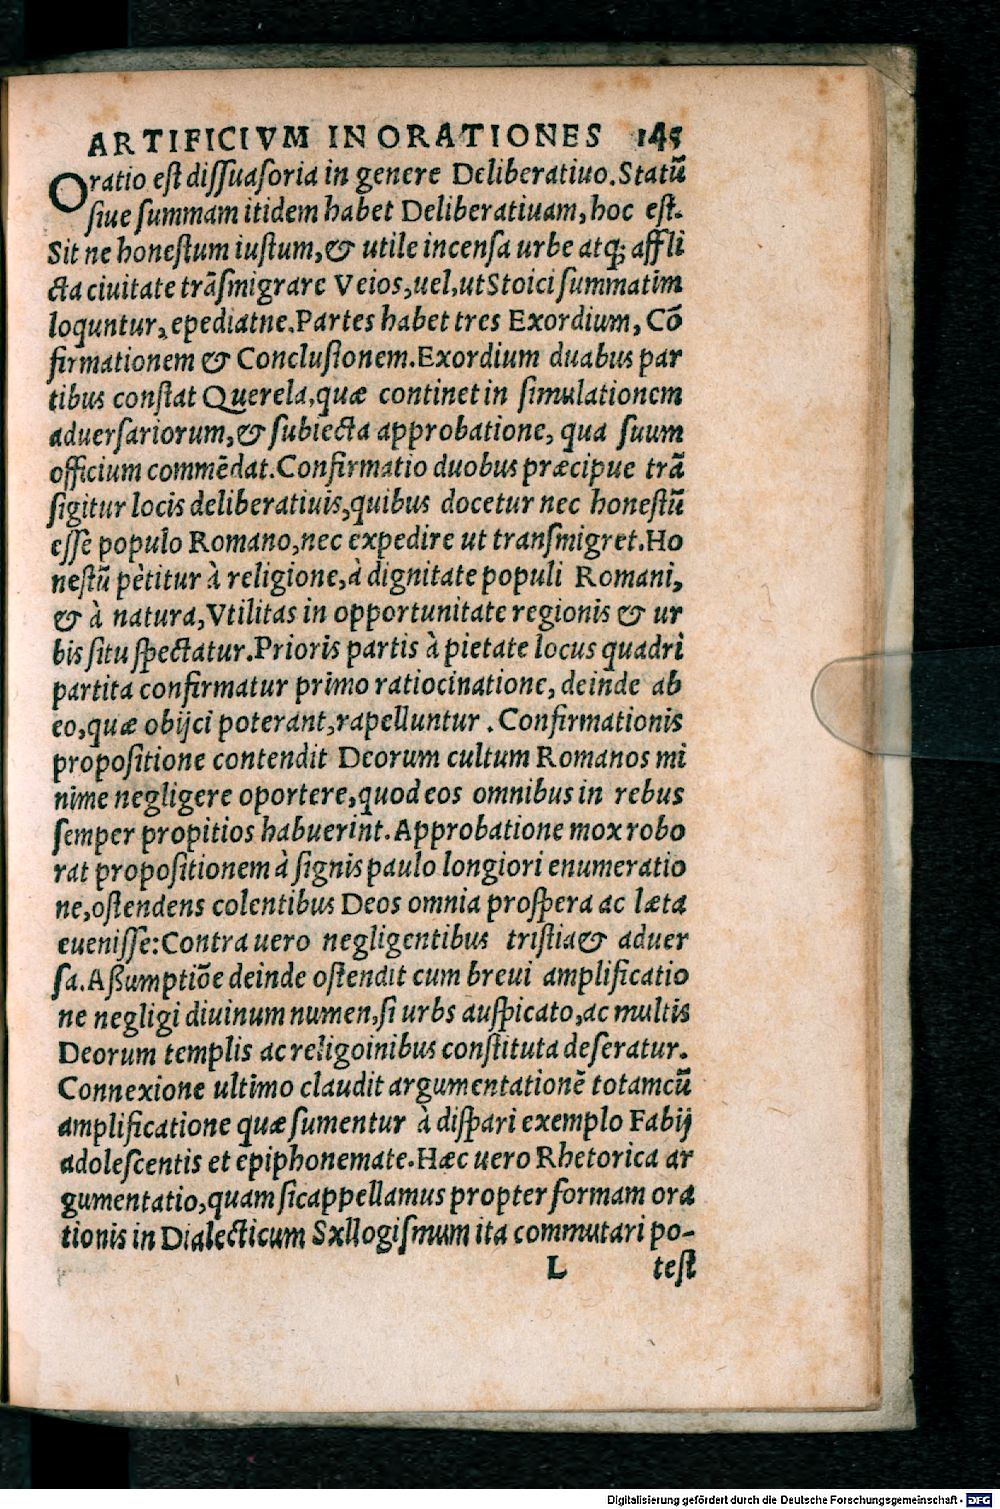 ARTIFICIVM IN ORATIONES 145
Oratio est dissuasoria in genere Deliberatiuo. Statū
siue summam itidem habet Deliberatiuam, hoc est.
Sit ne honestum iustum, & utile incensa urbe atq; affli
cta ciuitate trāsmigrare Veios, uel, ut Stoici summatim
loquntur, epediatne. Partes habet tres Exordium, Cō
firmationem & Conclusionem. Exordium duabus par
tibus constat Querela, quæ continet in simulationem
aduersariorum, & subiecta approbatione, qua suum
officium commēdat. Confirmatio duobus præcipue trā
sigitur locis deliberatiuis, quibus docetur nec honestū
esse populo Romano, nec expedire ut transmigret. Ho
nestū petitur à religione, à dignitate populi Romani,
& à natura, Vtilitas in opportunitate regionis & ur
bis situ spectatur. Prioris partis à pietate locus quadri
partita confirmatur primo ratiocinatione, deinde ab
eo, quæ obijci poterant, rapelluntur. Confirmationis
propositione contendit Deorum cultum Romanos mi
nime negligere oportere, quod eos omnibus in rebus
semper propitios habuerint. Approbatione mox robo
rat propositionem à signis paulo longiori enumeratio
ne, ostendens colentibus Deos omnia prospera ac læta
euenisse: Contra uero negligentibus tristia & aduer
sa. Aßumptiōe deinde ostendit cum breui amplificatio
ne negligi diuinum numen, si urbs auspicato, ac multis
Deorum templis ac religoinibus constituta deseratur.
Connexione ultimo claudit argumentationē totam cū
amplificatione quæ sumentur à dispari exemplo Fabij
adolescentis et epiphonemate. Hæc uero Rhetorica ar
gumentatio, quam sic appellamus propter formam ora
tionis in Dialecticum Sxllogismum ita commutari po-
L test
Digitalisierung gefördert durch die Deutsche Forschungsgemeinschaft - DFG